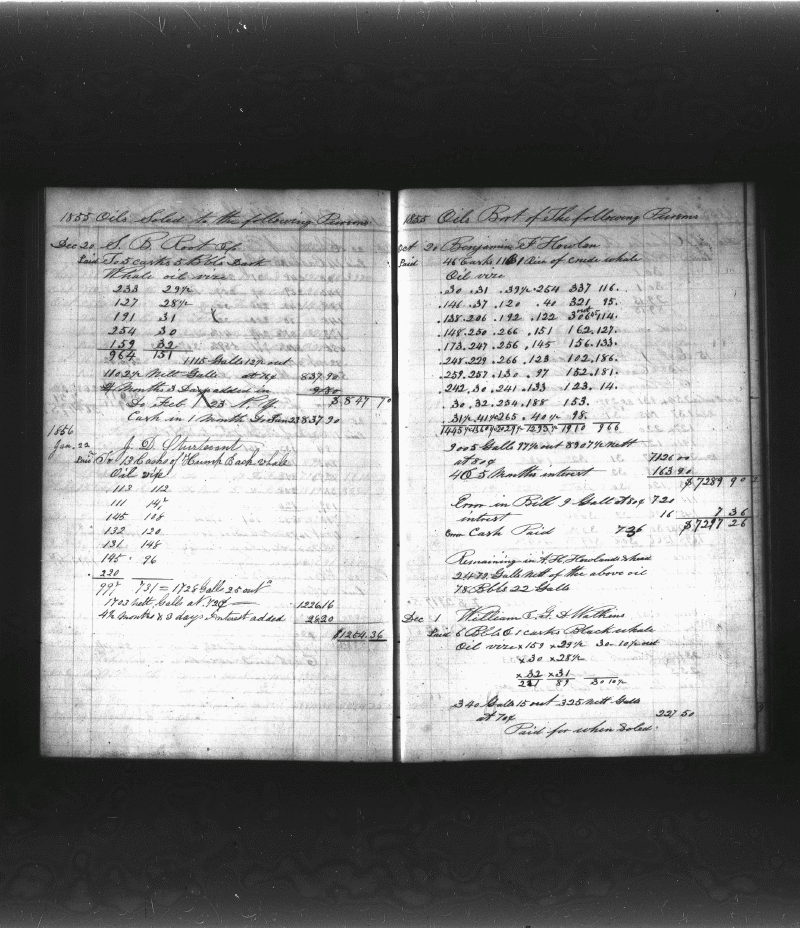 1855 Oils Soled to the following Persons
Dec 20 S. B. Root &Co
Paid To 5 casks 5 Bbls Dark
Whale oil vize
233 29½
127 28½
191 31
254 30
159 32
964 151 1115 Galls 12½ out
1102½ Nett Galls at 76 837.90
4 Months 3 Days added in 9.80
To Feb 23 N. Y. $847 70
Cash in 1 Month To Jan 23 837.90
1856
Jan. 22 J. D. Sturtevant
Paid To 13 Casks of Hump Back whale
Oil vize
113 112
111 14½
145 108
132 120
131 148
145 96
220
997 731 = 1728 Galls 25 out
1703 nett Galls at 72¢ 1226.16
4½ months & 3 days Interest added 28.20
$1254.36
1855 Oils Bort of The following Persons
Oct 20 Benjamin F. Howlen
Paid 46 Casks 11 of crude whale
Oil vize
.30 .31 .39½ .254 337 116.
.146 .37 .120 .40 321 95.
.138 .206 .192 .122 114.
.148 .250 .266 .151 162 .127.
.173 .247 .256 .145 156 .133.
.248 .229 .266 .123 102 .186.
.259 .257 .130 .97 152 .181.
.242 .30 .241 .133 123 .14.
.30 .32 .254 .188 153.
.31½ .41½ 265 .40½ 98.
1910 966
9005 Galls 97½ out 8907½ Nett
at 80¢ 7126 00
4 & 5 Months interest 163 90
$7289 90
Error in Bill 9 Galls at 80¢ 7.20
intrest 16 7 36
Error Cash Paid 736 $7297 26
Remaining in F. H. Howlands shed
2472 Galls Nett of the above oil
78 Bbls 22 Galls
Dec 1 William T. G. & Watkins
Paid 6 Bbls & 1 casks Black whale
Oil vize x 159 x 29½ 30 - 10½ out
x 30 x 28½
x 32 x 31
221 89 30 10½
340 Galls 15 out 325 Nett Galls
at 70¢ 227 50
Paid for when Soled.